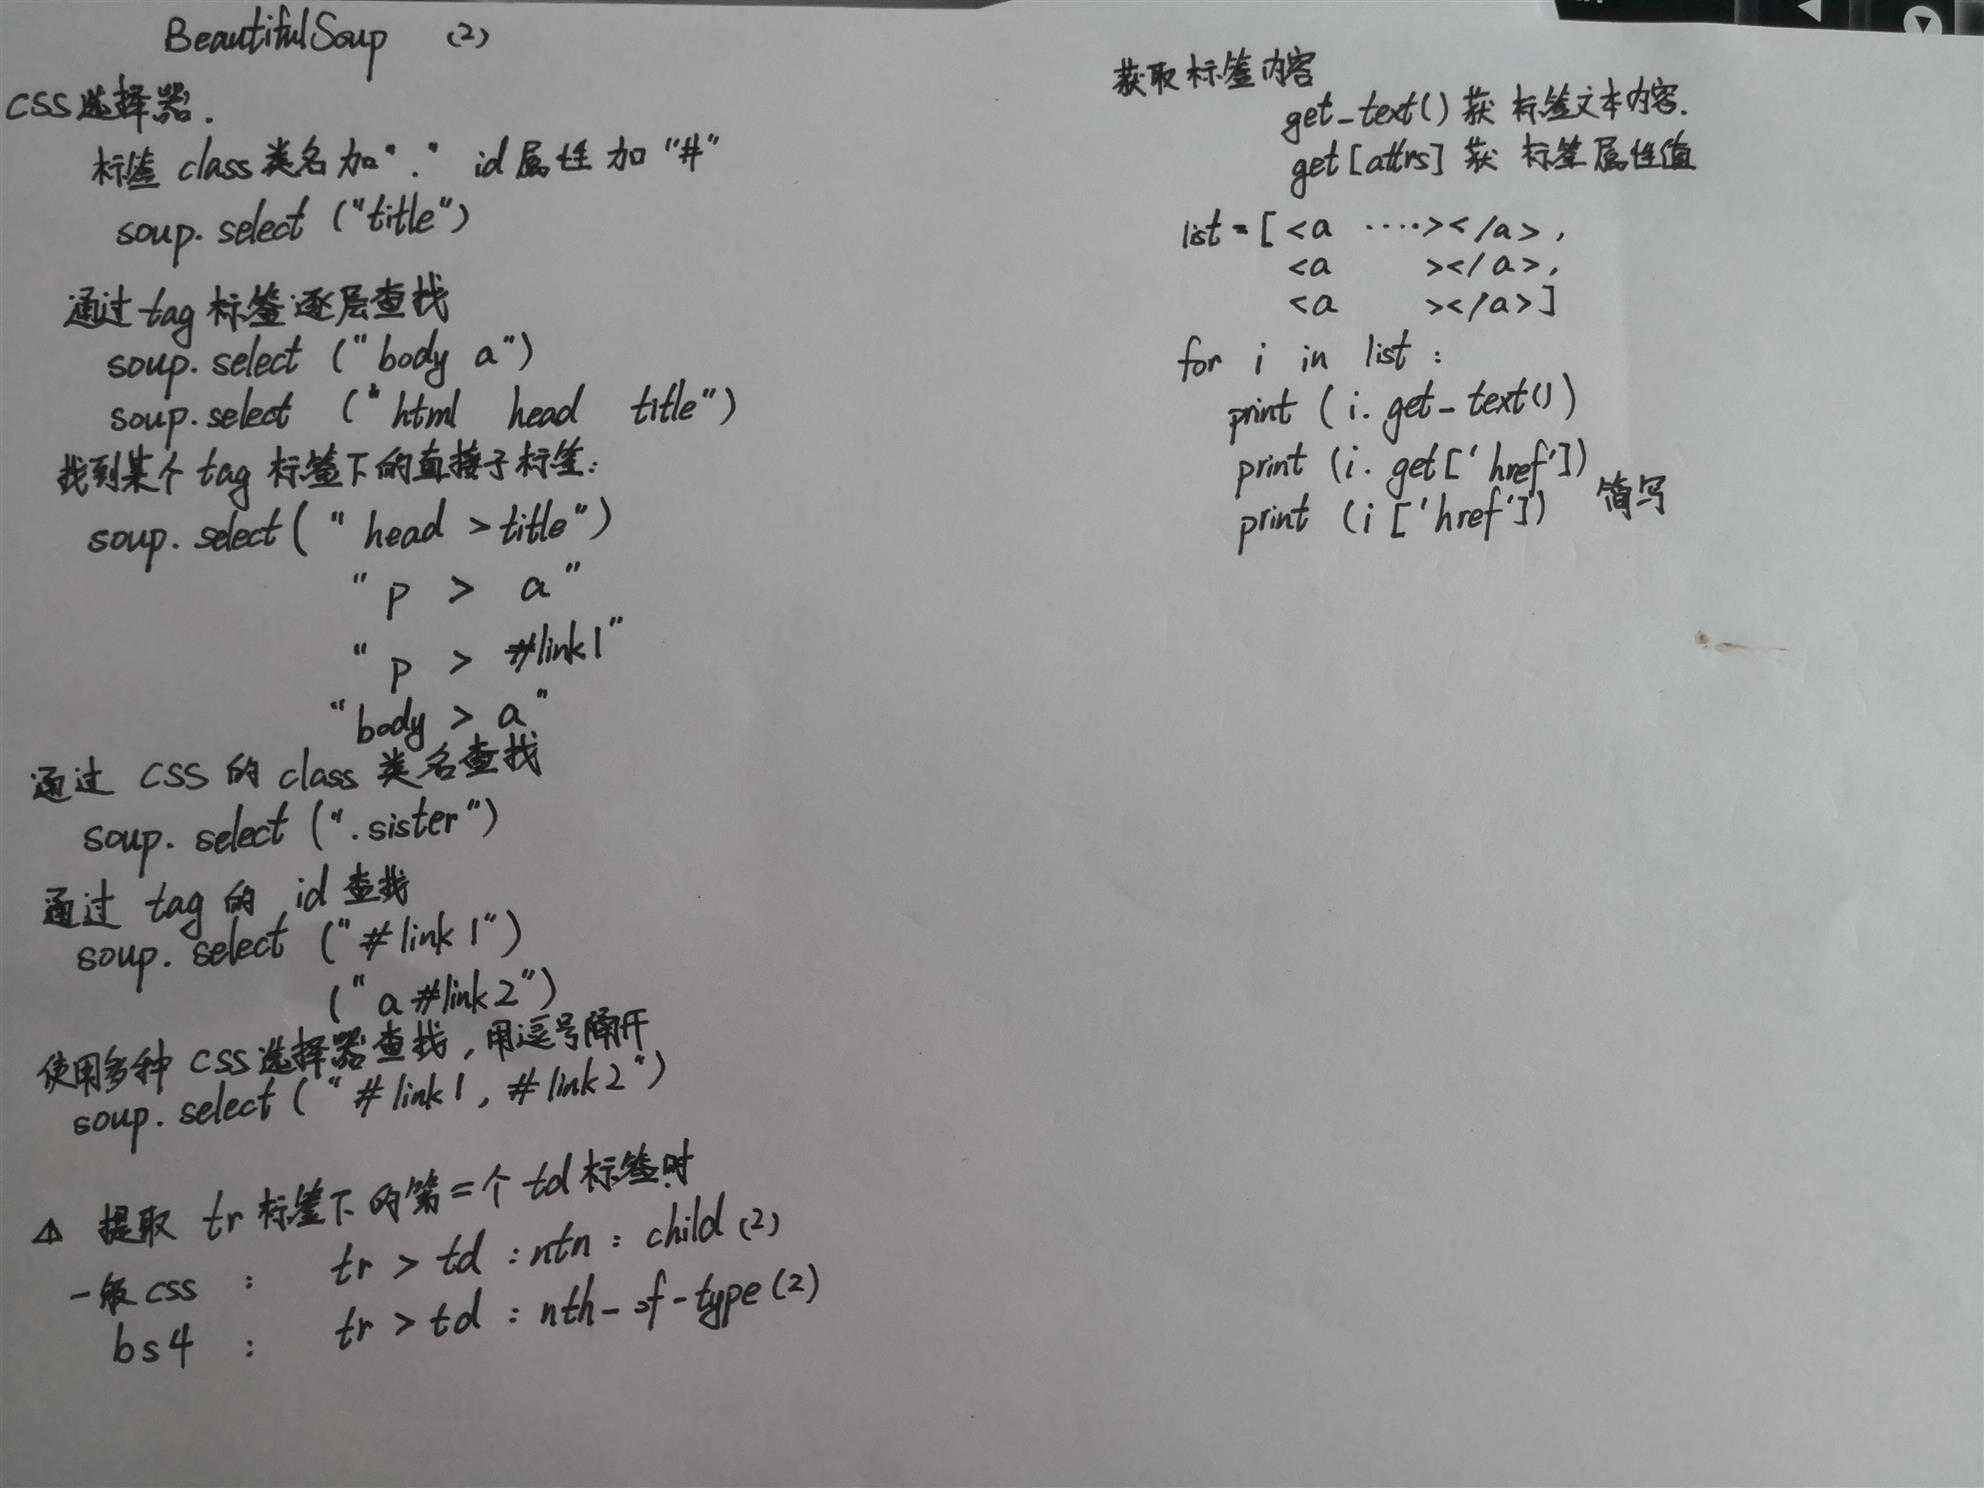 BeautifulSoup (2)
CSS选择器.
标签 class类名加"." id属性加"#"
soup.select ("title")
通过tag标签逐层查找
soup.select ("body a")
soup.select ("html head title")
找到某个tag标签下的直接子标签:
soup.select("head >title")
"p > a"
"p > #link1"
"body > a"
通过 CSS 的 class 类名查找
soup.select (".sister")
通过 tag 的 id 查找
soup.select ("#link1")
("a#link2")
使用多种 CSS选择器查找,用逗号隔开
soup.select("#link1, #link2")
⚠ 提取 tr标签下的第二个td标签时
一般css : tr > td :ntn : child (2)
bs4 : tr > td : nth-of-type(2)
获取标签内容
get_text()获 标签文本内容.
get[attrs] 获 标签属性值
list = [<a ····></a>,
<a ></a>,
<a ></a>]
for i in list :
print (i. get_text())
print (i. get['href'])
print (i ['href']) 简写